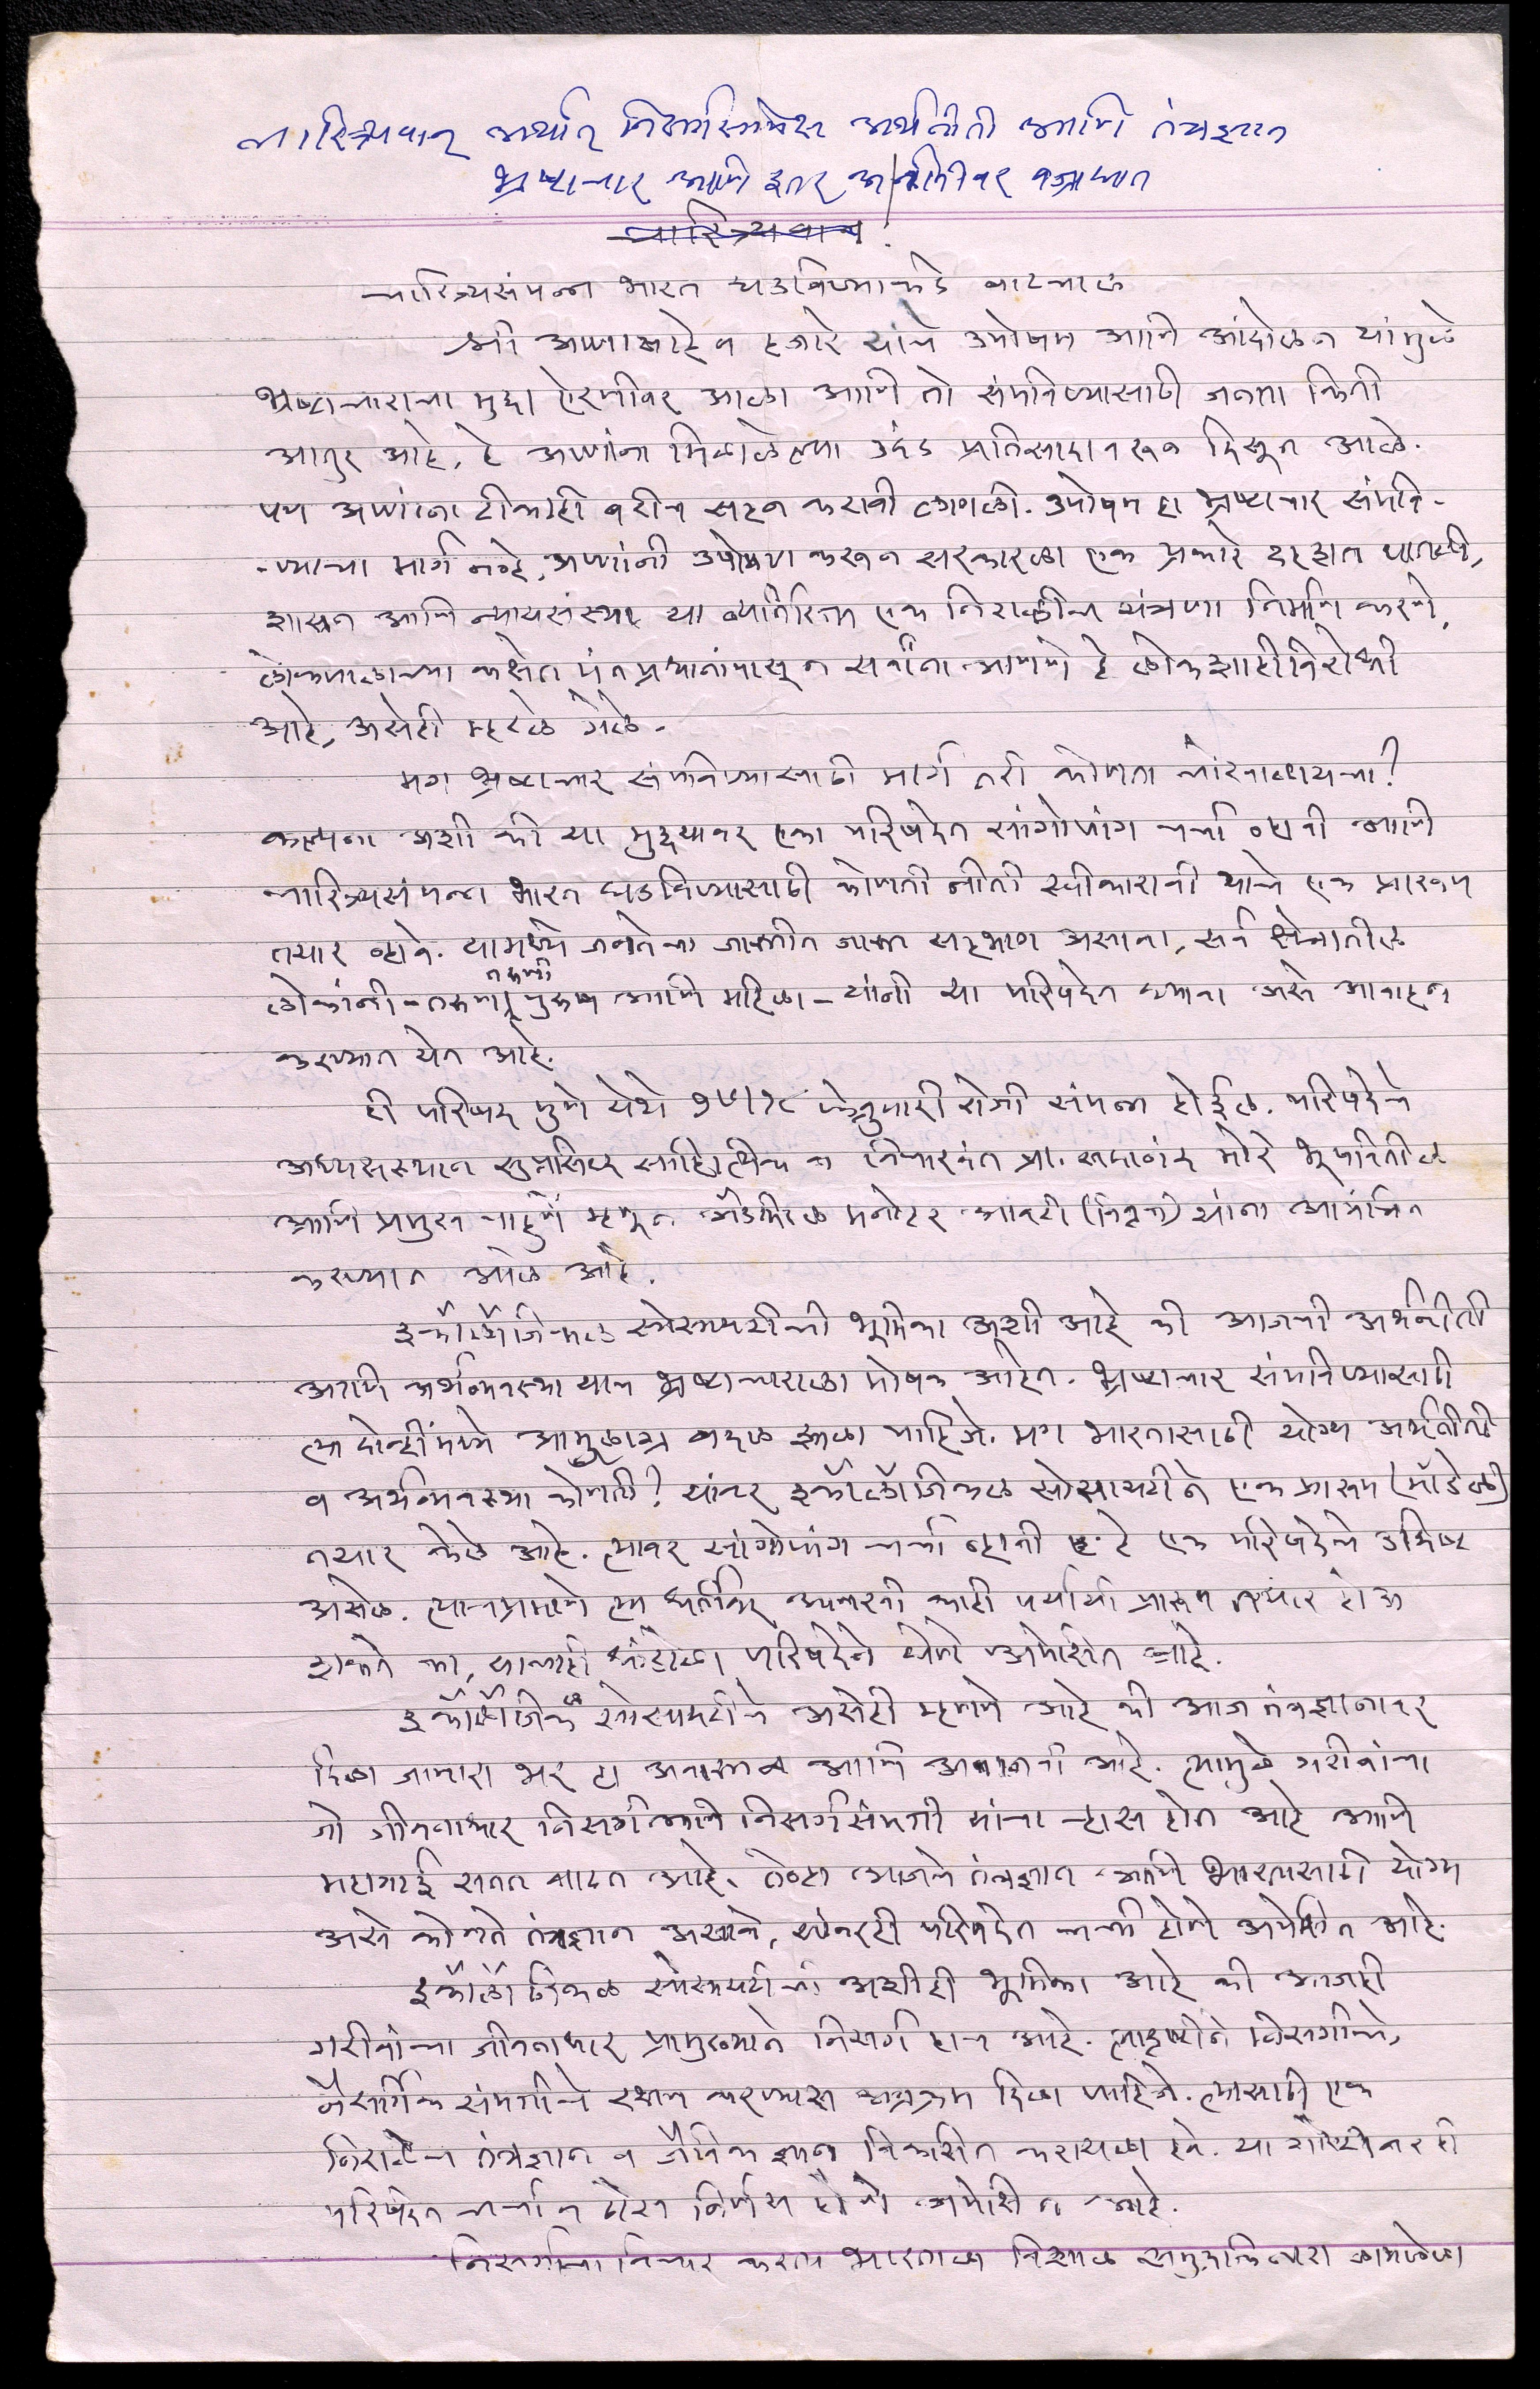 चारित्र्यवान अर्थात निसर्गसापेक्ष अर्थनीती आणि तंत्रज्ञान
भ्रष्टाचार आणि इतर अनीतीवर वज्राघात
चारित्र्यवान
चारित्र्यसंपन्न भारत घडविण्याकडे वाटचाल
श्री अण्णासाहेब हजारे यांचे उपोषण आणि आंदोलन यांमुळे
भ्रष्टाचाराचा मुद्दा ऐरणीवर आला आणि तो संपविण्यासाठी जनता किती
आतुर आहे, हे अण्णांना मिळालेल्या उदंड प्रतिसादावरून दिसून आले.
पण अण्णांना टीकाही बरीच सहन करावी लागली. उपोषण हा भ्रष्टाचार संपवि-
-ण्याचा मार्ग नव्हे, अण्णांनी उपोषण करून सरकारला एक प्रकारे दहशत घातली,
शासन आणि न्यायसंस्था या व्यतिरिक्त एक निराळीच यंत्रणा निर्माण करणे,
लोकपालाच्या कक्षेत पंतप्रधानांपासून सर्वांना आणणे हे लोकशाहीविरोधी
आहे, असेही म्हटले गेले.
मग भ्रष्टाचार संपविण्यासाठी मार्ग तरी कोणता चोखाळायचा?
कल्पना अशी की या मुद्द्यावर एका परिषदेत सांगोपांग चर्चा व्हावी आणि
चारित्र्यसंपन्न भारत घडविण्यासाठी कोणती नीती स्वीकारावी याचे एक प्रारूप
तयार व्हावे. यामध्ये जनतेचा जास्तीत जास्त सहभाग असावा, सर्व क्षेत्रातील
लोकांनी - तरुण, तरुणी पुरुष आणि महिला - यांनी या परिषदेत यावा असे आवाहन
करण्यात येत आहे.
ही परिषद पुणे येथे १७।१८ फेब्रुवारी रोजी संपन्न होईल. परिषदेचे
अध्यक्षस्थान सुप्रसिद्ध साहित्यिक व विचारवंत प्रा. सदानंद मोरे भूषवितील
आणि प्रमुख पाहुणे म्हणून ॲडमिरल मनोहर आवटी (निवृत्त) यांना आमंत्रित
करण्यात आले आहे.
इकॉलॉजिकल सोसायटीची भूमिका अशी आहे की आजची अर्थनीती
आणि अर्थव्यवस्था याच भ्रष्टाचाराला पोषक आहेत. भ्रष्टाचार संपविण्यासाठी
त्या दोन्हींमध्ये आमूलाग्र बदल झाला पाहिजे. मग भारतासाठी योग्य अर्थनीती
व अर्थव्यवस्था कोणती? यांवर इकॉलॉजिकल सोसायटीने एक प्रारूप (मॉडेल)
तयार केले आहे. त्यावर सांगोपांग चर्चा व्हावी हे एक परिषदेचे उद्दिष्ट
असेल. त्याचप्रमाणे त्या धर्तीवर आणखी काही पर्यायी प्रारूप तयार होऊ
शकते का, याचाही धांडोळा परिषदेने घेणे अपेक्षित आहे.
इकॉलॉजिकल सोसायटीचे असेही म्हणणे आहे की आज तंत्रज्ञानावर
दिला जाणारा भर हा अनाठायी आणि अवाजवी आहे. त्यामुळे गरीबांचा
जो जीवनाधार निसर्ग आणि निसर्गसंपत्ती यांचा ऱ्हास होत आहे आणि
महागाई सतत वाढत आहे. तेव्हा आजचे तंत्रज्ञान आणि भारतासाठी योग्य
असे कोणते तंत्रज्ञान असावे, यांवरही परिषदेत चर्चा होणे अपेक्षित आहे.
इकॉलॉजिकल सोसायटीची अशीही भूमिका आहे की आजही
गरीबांचा जीवनाधार प्रामुख्याने निसर्ग हाच आहे. त्यादृष्टीने निसर्गाचे,
नैसर्गिक संपत्तीचे रक्षण करण्यास अग्रक्रम दिला पाहिजे. त्यासाठी एक
निराळेच तंत्रज्ञान व जैविक ज्ञान विकसित करायला हवे. या गोष्टीवरही
परिषदेत चर्चा व ठोस निर्णय होणे अपेक्षित आहे.
निसर्गाचा विचार करता भारताला विशाल समुद्रकिनारा लाभलेला